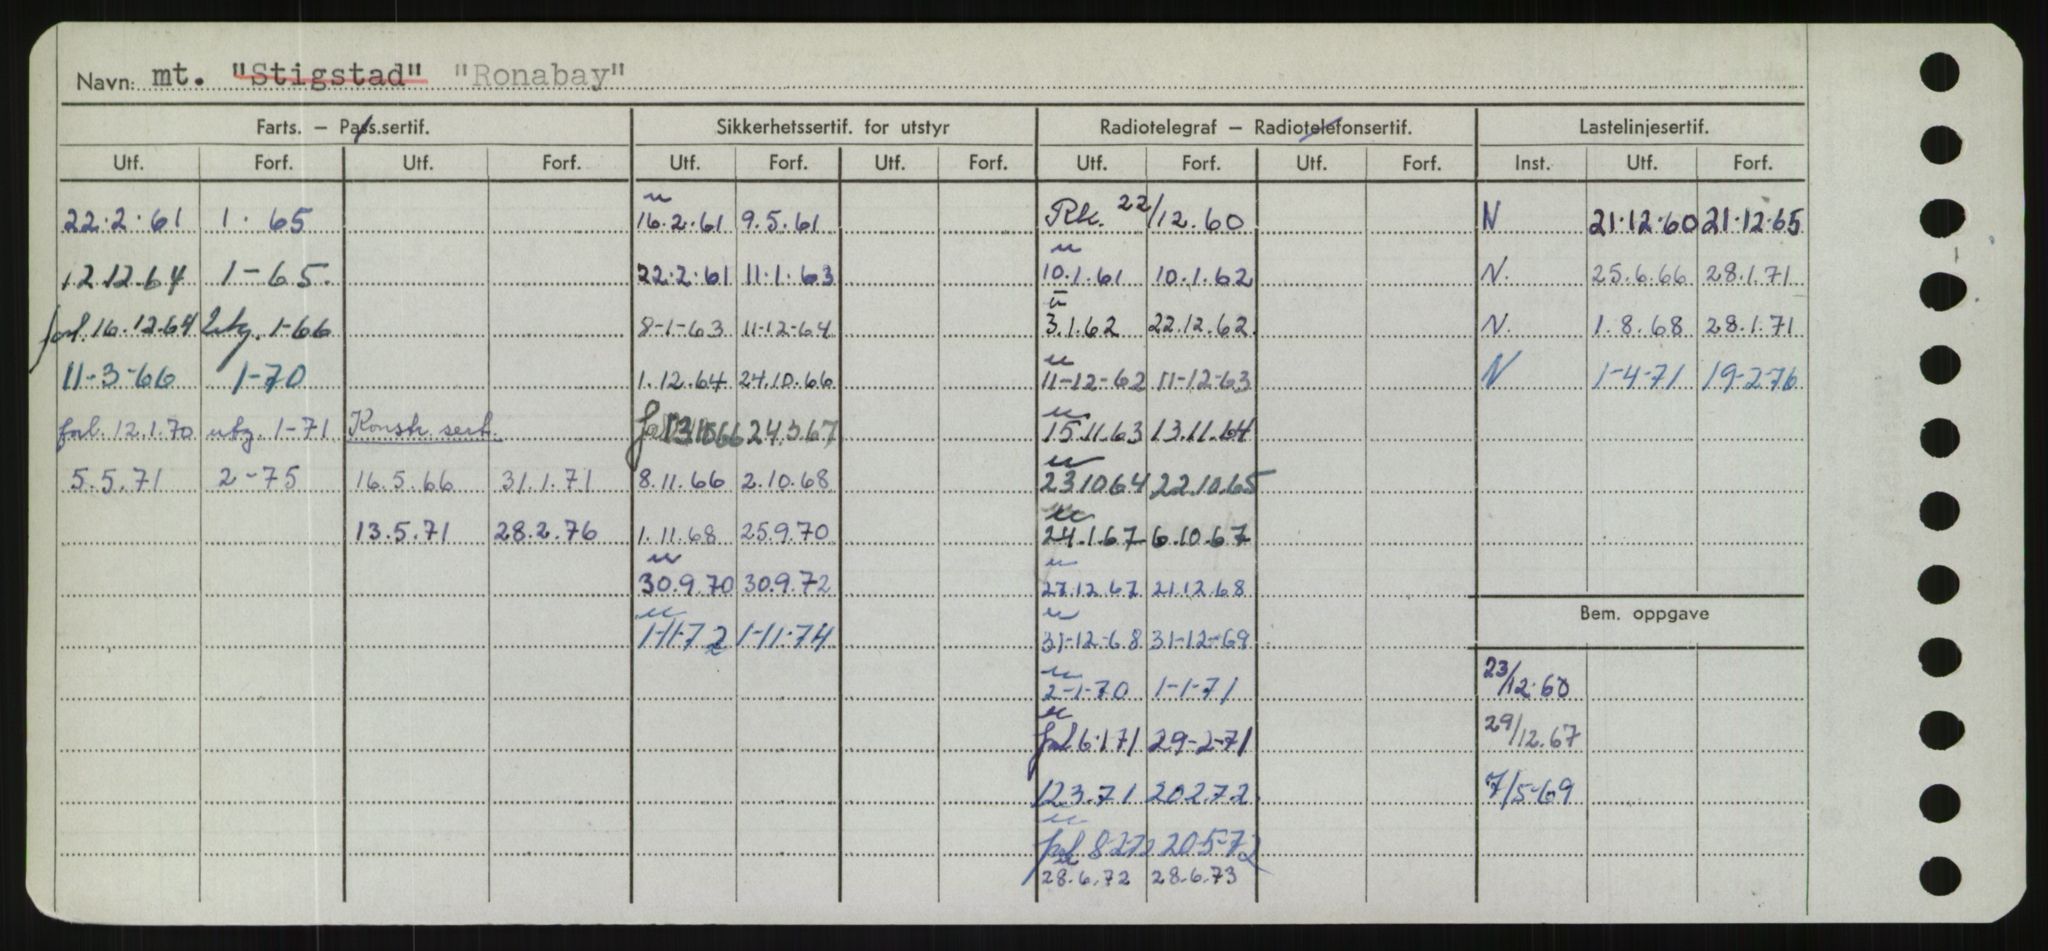 Navn: mt. "Stigstad" "Ronabay"
Farts. – Pass.sertif. Sikkerhetssertif. for utstyr Radiotelegraf – Radiotelefonsertif. Lastelinjesertif.
Utf. Forf. Utf. Forf. Utf. Forf. Utf. Forf. Utf. Forf. Utf. Forf. Inst. Utf. Forf.
22.2.61 1. 65 u 16.2.61 9.5.61 Rk. 22/12.60 N 21.12.60 21.12.65
12.12.64 1-65. 22.2.61 11.1.63 u 10.1.61 10.1.62 N. 25.6.66 28.1.71
forl. 16.12.64 utg. 1-66 8-1-63 11-12-64 u 3.1.62 22.12.62. N. 1.8.68 28.1.71
11-3-66 1-70 1.12.64 24.10.66 u 11-12-62 11-12-63 N 1-4-71 19-2-76
forl. 12.1.70 utg. 1-71 Konstr. sert. 24.3.67 u 15.11.63 13.11.64
5.5.71 2-75 16.5.66 31.1.71 8.11.66 2.10.68 u 23.10.64 22.10.65
13.5.71 28.2.76 1.11.68 25.9.70 u 24.1.67 6.10.67
u 30.9.70 30.9.72 u 27.12.67 21.12.68
Bem. oppgave
u 1-11-72 1-11-74 u 31-12-68 31-12-69
u 2-1-70 1-1-71 23/12.60
u forl 6.1.71 29-2-71 29/12.67
12.3.71 20.2.72 7/5-69
u forl 20-5-72
28.6.72 28.6.73